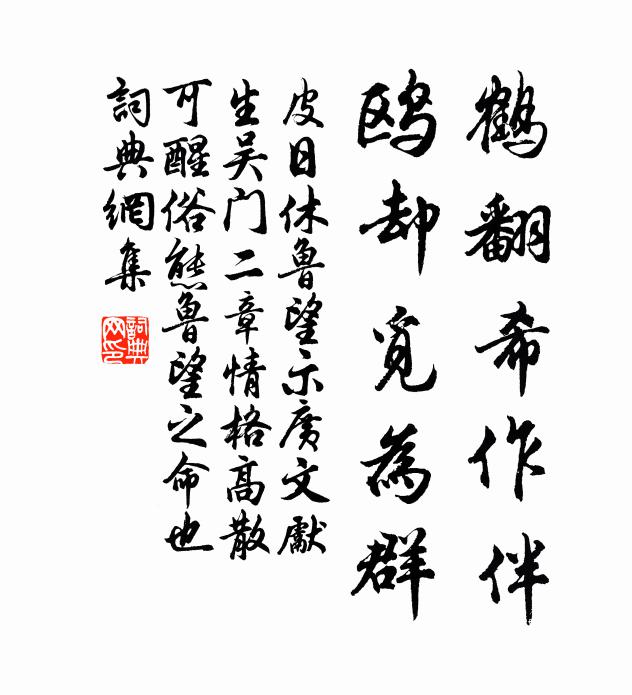 鶴翻希作伴
鸥却覓為群
皮日休魯望示廣文獻
生吴门二章情格高散
可醒俗態魯望之命也
詞典網集
詞典
网印